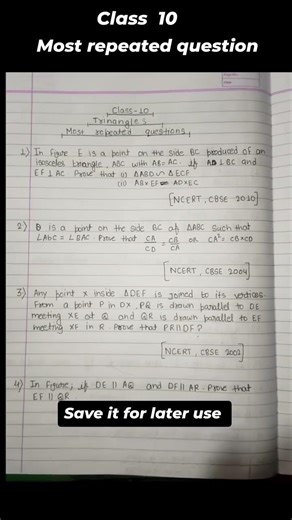 Class 10
Most repeated question
Class-10
Trinangles
Most repeated questions,
1) In figure E is a point on the side BC produced of an
isosceles triangle, ABC with AB = AC. if AD ⊥ BC and
EF ⊥ AC. Prove that (i) ΔABD ∽ ΔECF
(ii) AB×EF = AD×EC
[NCERT, CBSE 2010]
2) D is a point on the side BC of ΔABC such that
∠ADC = ∠BAC. Prove that CA/CD = CB/CA or CA² = CB×CD
[NCERT, CBSE 2004]
3) Any point X inside ΔDEF is joined to its vertices
From a point P in DX, PQ is drawn parallel to DE
meeting XE at Q and QR is drawn parallel to EF
meeting XF in R. Prove that PR || DF?
[NCERT, CBSE 2002]
4) In Figure, if DE || AQ and DF || AR. Prove that
EF || QR
Save it for later use